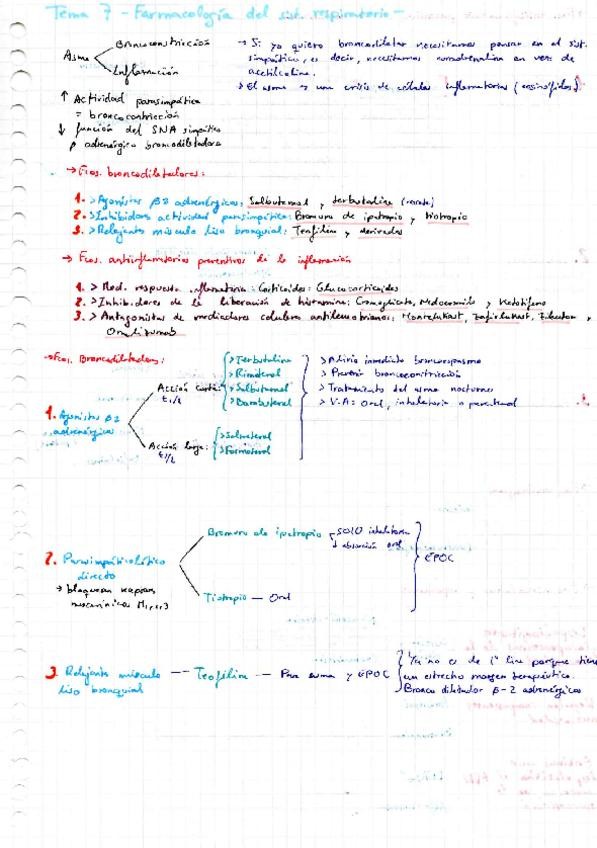 Tema 7 - Farmacología del sist. respiratorio -
Asma
Broncoconstricción
Inflamación
→ Si yo quiero broncodilatar necesitamos pensar en el sist.
simpático, es decir, necesitamos noradrenalina en vez de
acetilcolina.
→ El asma → una crisis de células inflamatorias (eosinófilos)
↑ Actividad parasimpática
= broncoconstricción
↓ función del SNA simpático
β adrenérgico broncodilatadora
→ Fcos. broncodilatadores:
1. > Agonistas β2 adrenérgicos: Salbutamol y terbutalina
2. > Inhibidores actividad parasimpática: Bromuro de ipratropio y tiotropio
3. > Relajantes músculo liso bronquial: Teofilina y derivados
→ Fcos. antiinflamatorios preventivos de la inflamación
1. > Mod. respuesta inflamatoria: Corticoides: Glucocorticoides
2. > Inhibidores de la liberación de histamina: Cromoglicato, Nedocromilo y Ketotifeno
3. > Antagonistas de mediadores celulares antileucotrienos: Montelukast, Zafirlukast, Zileuton y
Omalizumab
→ Fcos. Broncodilatadores:
1. Agonistas β2
adrenérgicos
Acción corta:
t1/2
> Terbutalina
> Rimiterol
> Salbutamol
> Bambuterol
Acción larga:
t1/2
> Salmeterol
> Formoterol
> Alivio inmediato broncoespasmo
> Prevenir broncoconstricción
> Tratamiento del asma nocturno
> V.A: Oral, inhalatoria o parenteral
2. Parasimpáticolítico
directo
→ bloquean receptores
muscarínicos M1 y 3
Bromuro de ipratropio
SOLO inhalatoria
↓ absorción oral
Tiotropio — Oral
EPOC
3. Relajante músculo
liso bronquial
— Teofilina — Para asma y EPOC
Ya no es de 1ª línea porque tiene
un estrecho margen terapéutico.
Broncodilatador β-2 adrenérgicos